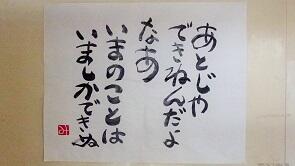 あとじゃ
できねんだよ
なあ
いまのことは
いましかできぬ
み